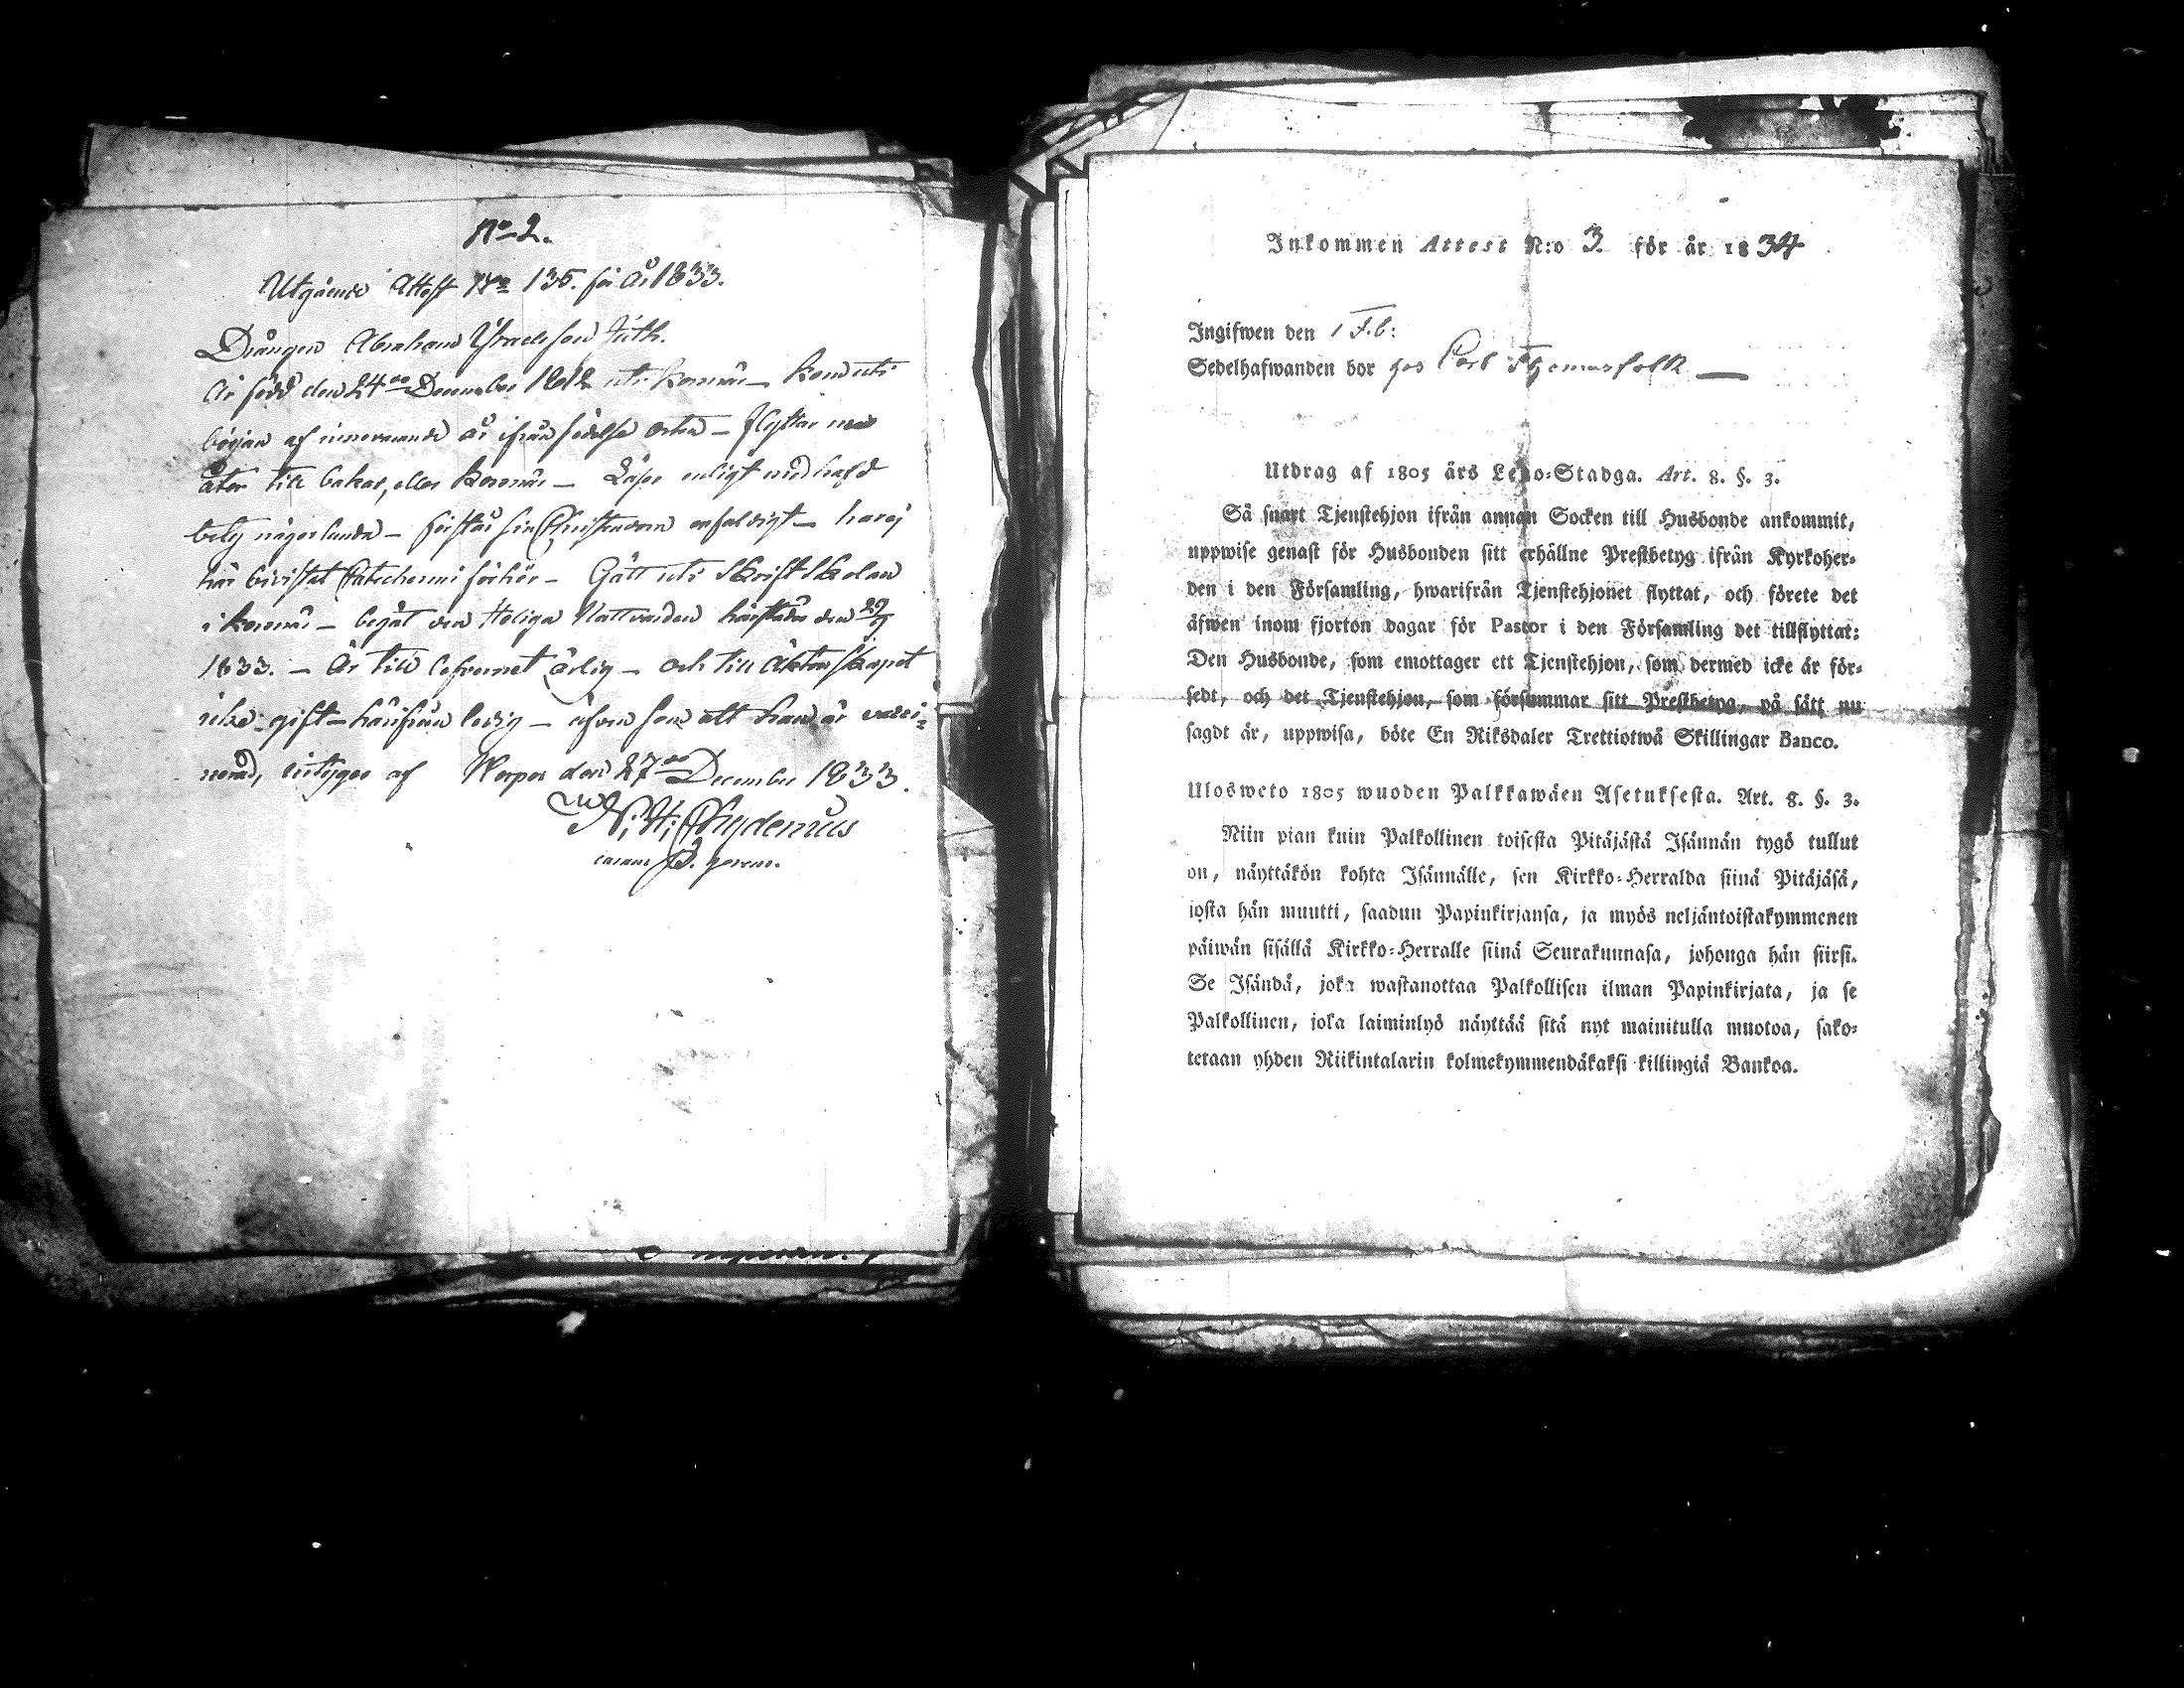 No 2.
Utgående Attest No 135. för År 1833.
Drängen Abraham
är född den 24de December 1812 uti Kosmär — Kom uti
början af innevarande år ifrån födelse orten — flyttar nu
åter till bakar, eller — Läser enligt medhafd
betyg någorlunda — förstår sin Christendom enfaldigt — har ej
här bivistat Catechismi förhör — Gått uti Skriftskolan
i — begåt den Heliga Nattvarden härstädes den
1833. — Är till lefvernet ärlig — och till Äktenskapet
icke gift — härifrån ledig — äfven som att han är vacci-
nerad, intygar af den 27de December 1833.
Chydenius
Inkommen Attest N:o 3. för år 1834
Ingifwen den 1 Feb:
Sedelhafwanden bor hos Carl
Utdrag af 1805 års Lego-Stadga. Art. 8. §. 3.
Så snart Tjenstehjon ifrån annan Socken till Husbonde ankommit,
uppwise genast för Husbonden sitt erhållne Prestbetyg ifrån Kyrkoher-
den i den Församling, hwarifrån Tjenstehjonet flyttat, och förete det
äfwen inom fjorton dagar för Pastor i den Församling det tillflyttat:
Den Husbonde, som emottager ett Tjenstehjon, som dermed icke är för-
sedt, och det Tjenstehjon, som försummar sitt Prestbetyg, på sätt nu
sagdt är, uppwisa, böte En Riksdaler Trettiotwå Skillingar Banco.
Ulosweto 1805 wuoden Palkkawäen Asetuksesta. Art. 8. §. 3.
Niin pian kuin Palkollinen toisesta Pitäjästä Isännän tygö tullut
on, näyttäkön kohta Isännälle, sen Kirkko-Herralda siinä Pitäjäsä,
josta hän muutti, saadun Papinkirjansa, ja myös neljäntoistakymmenen
päiwän sisällä Kirkko-Herralle siinä Seurakunnasa, johonga hän siirsi.
Se Isändä, joka wastanottaa Palkollisen ilman Papinkirjata, ja se
Palkollinen, joka laiminlyö näyttää sitä nyt mainitulla muotoa, sako-
tetaan yhden Riikintalarin kolmekymmendäkaksi killingiä Bankoa.